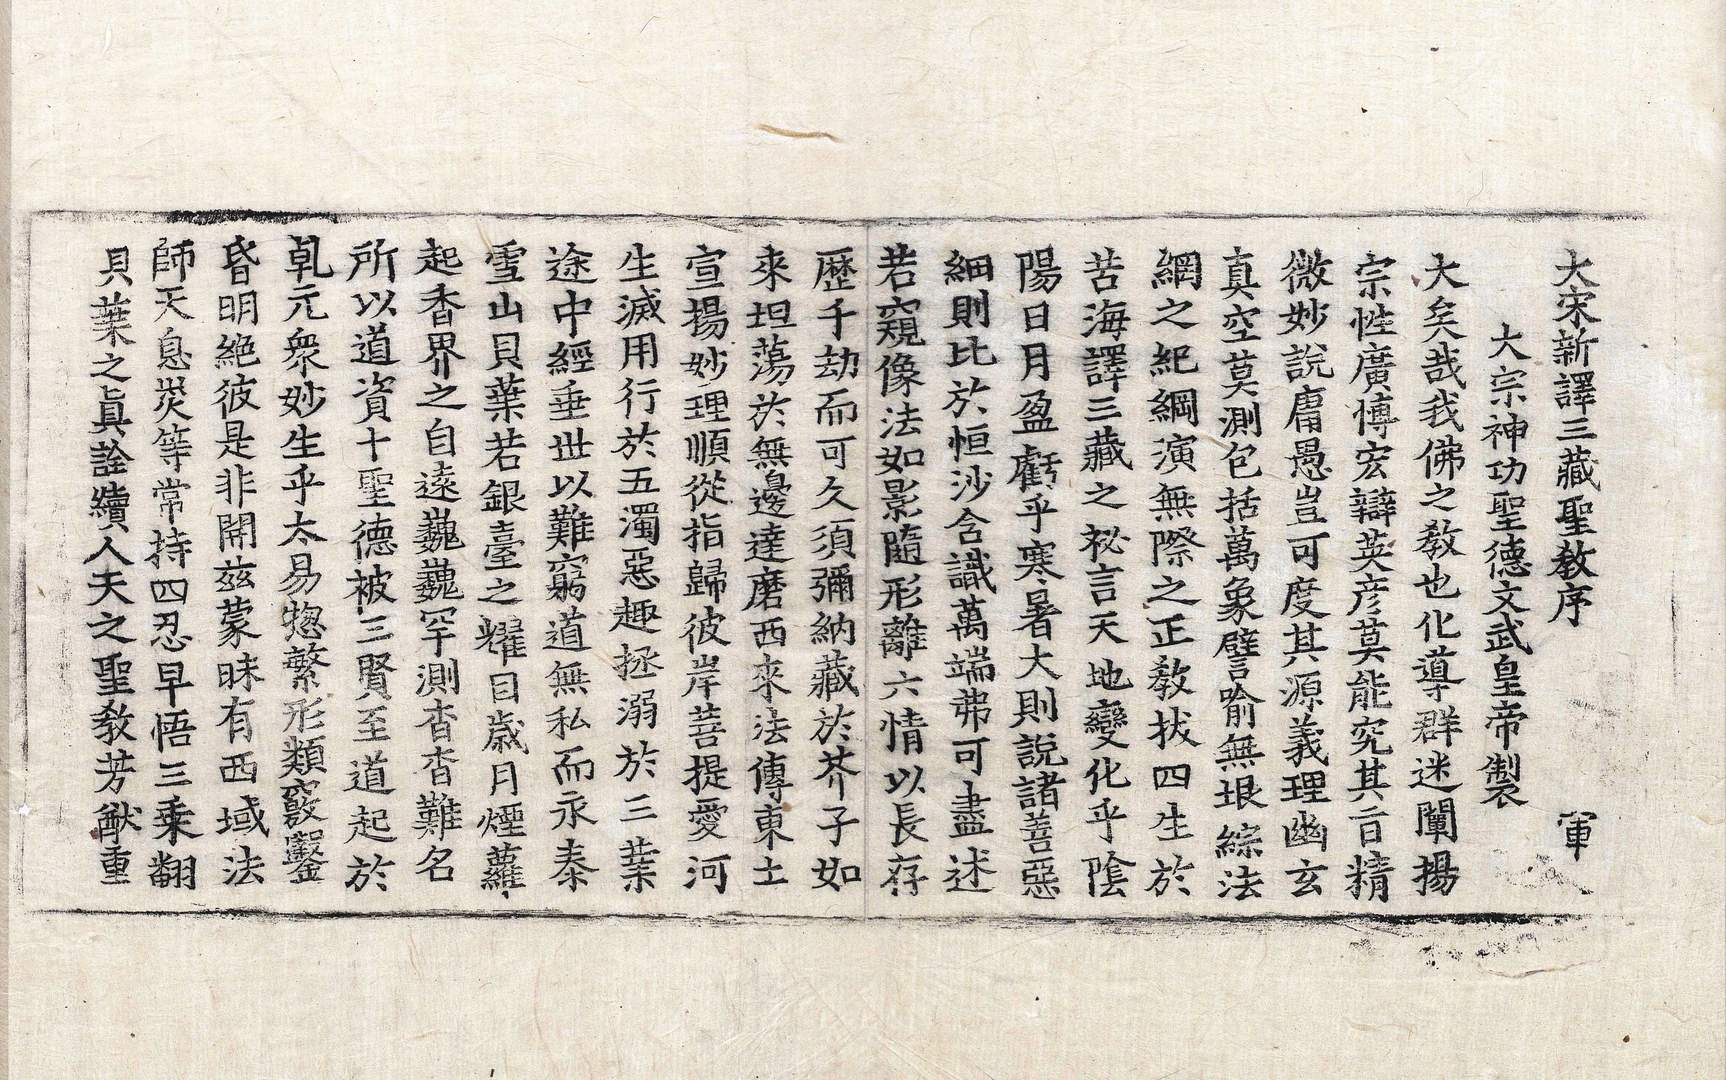 大宋新譯三藏聖教序 軍
大宗神功聖德文武皇帝製
大矣哉我佛之教也化導群迷闡揚
宗性廣博宏辯英彦莫能究其旨精
微妙說庸愚豈可度其源義理幽玄
真空莫測包括萬象譬喻無垠綜法
綱之紀綱演無際之正教拔四生於
苦海譯三藏之祕言天地變化乎陰
陽日月盈虧乎寒暑大則說諸善惡
細則比於恒沙含識萬端弗可盡述
若窺像法如影隨形離六情以長存
歷千劫而可久須彌納藏於芥子如
來坦蕩於無邊達磨西來法傳東土
宣揚妙理順從指歸彼岸菩提愛河
生滅用行於五濁惡趣拯溺於三業
途中經垂世以難窮道無私而永泰
雪山貝葉若銀臺之耀目歲月煙蘿
起香界之自遠巍巍罕測杳杳難名
所以道資十聖德被三賢至道起於
乹元衆妙生乎太易惣繁形類竅鑿
昏明絶彼是非開兹蒙昧有西域法
師天息灾等常持四忍早悟三乘翻
貝葉之眞詮續人天之聖教芳猷重